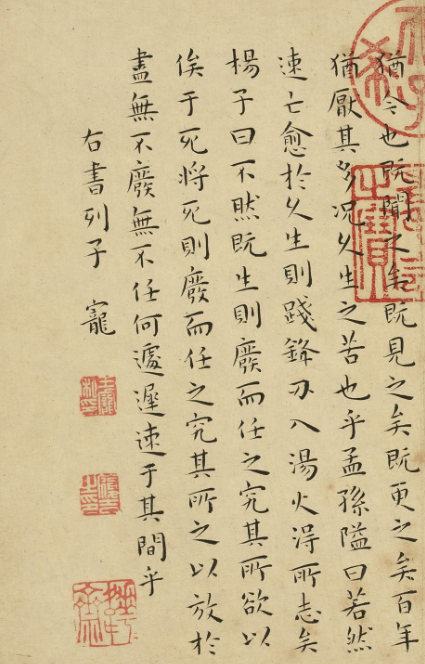 猶今也既聞之矣既見之矣既更之矣百年
猶厭其多况乆生之苦也乎孟孫隘曰若然
速亡愈於乆生則踐鋒刃入湯火淂所志矣
楊子曰不然既生則廢而任之究其所欲以
俟于死將死則廢而任之究其所之以放於
盡無不廢無不任何遽遲速于其間乎
右書列子 寵